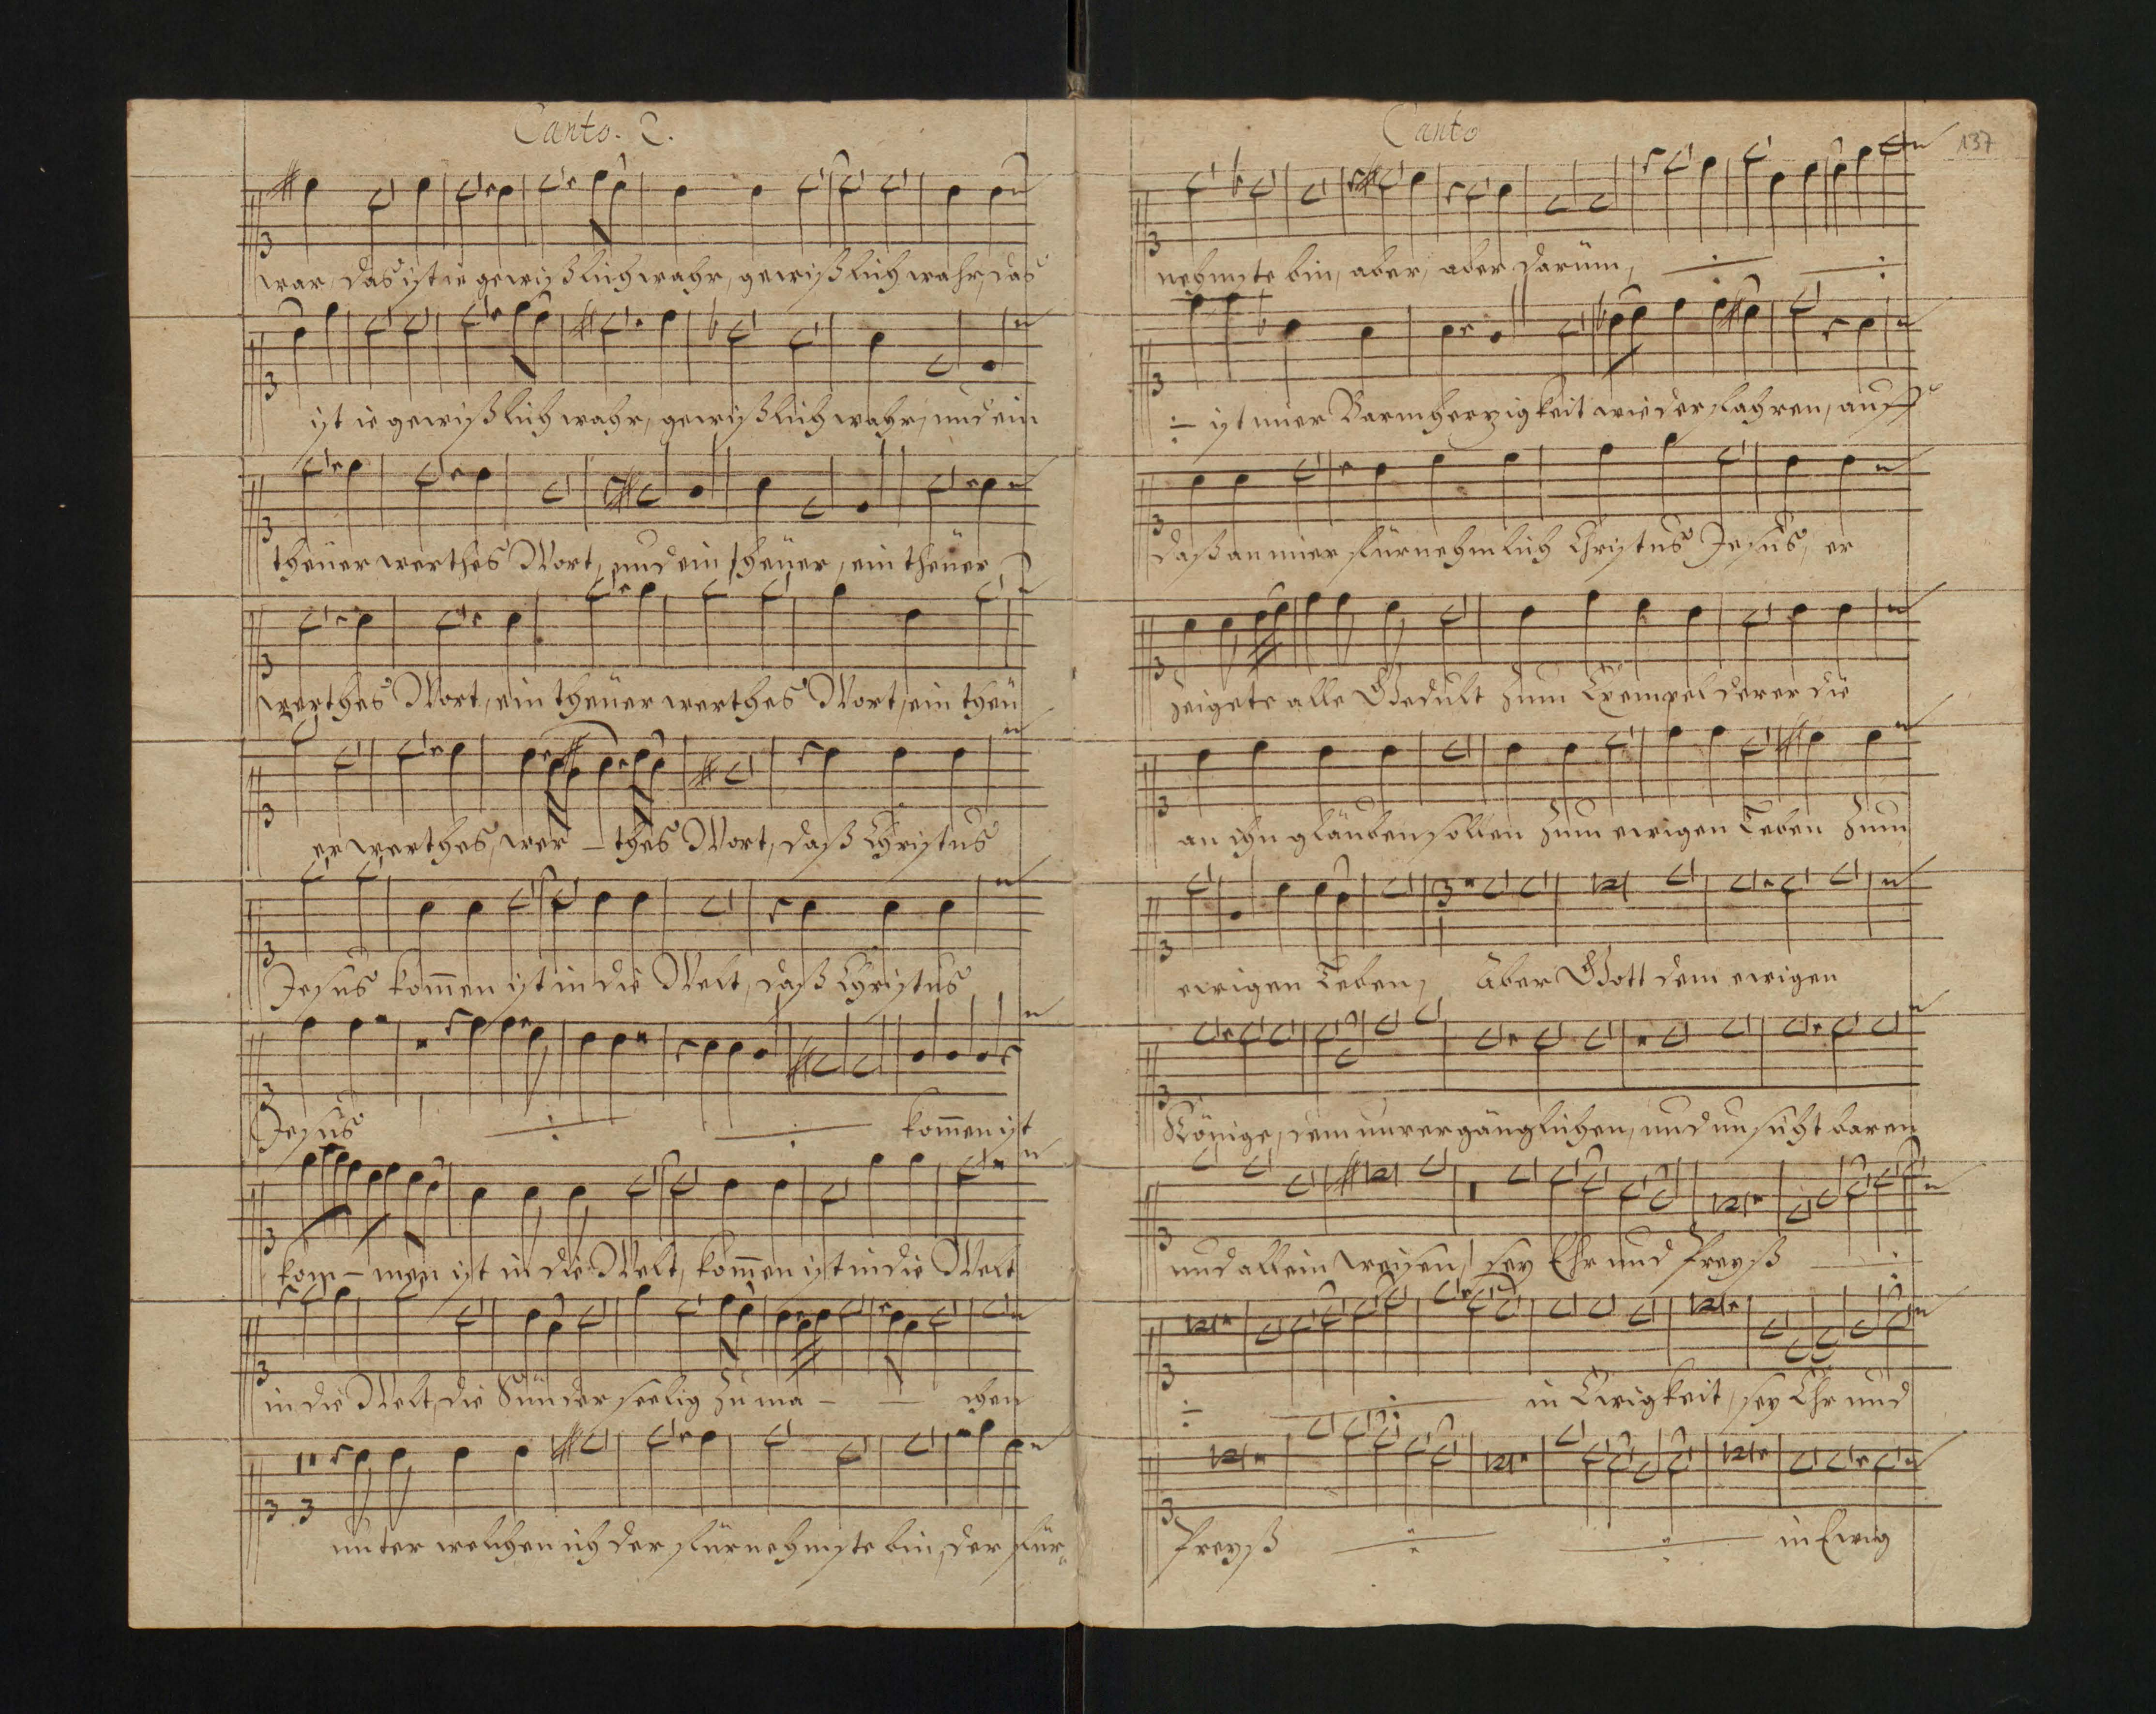 Canto. 2.
war, das ist ie gewißlich wahr, gewißlich wahr, das
ist ie gewißlich wahr, gewißlich wahr, und ein
theüer werthes Wort, und ein theüer, ein theüer
werthes Wort, ein theüer werthes Wort, ein theü
er werthes, wer - thes Wort, daß Christus
Jesus kom̅en ist in die Welt, daß Christus
Jesus kom̅en ist
kom - men ist in die Welt, kom̅en ist in die Welt
in die Welt, die Sünder seelig zu ma - - chen
unter welchen ich der fürnehmste bin, der für-
Canto
137
nehmste bin, aber, aber darüm,
ist mier Barmherzigkeit wiederfahren, auff
daß an mier fürnehmlich Christus Jesus, er
zeigete alle Gedult zum Exempel derer die
an ihn gläuben sollen zum ewigen Leben zum
ewigen Leben, Aber Gott dem ewigen
Könige, dem unvergänglichen, und unsichtbaren
und allein weisen, sey Ehr und Preyß
in Ewigkeit, sey Ehr und
Preyß in Ewig